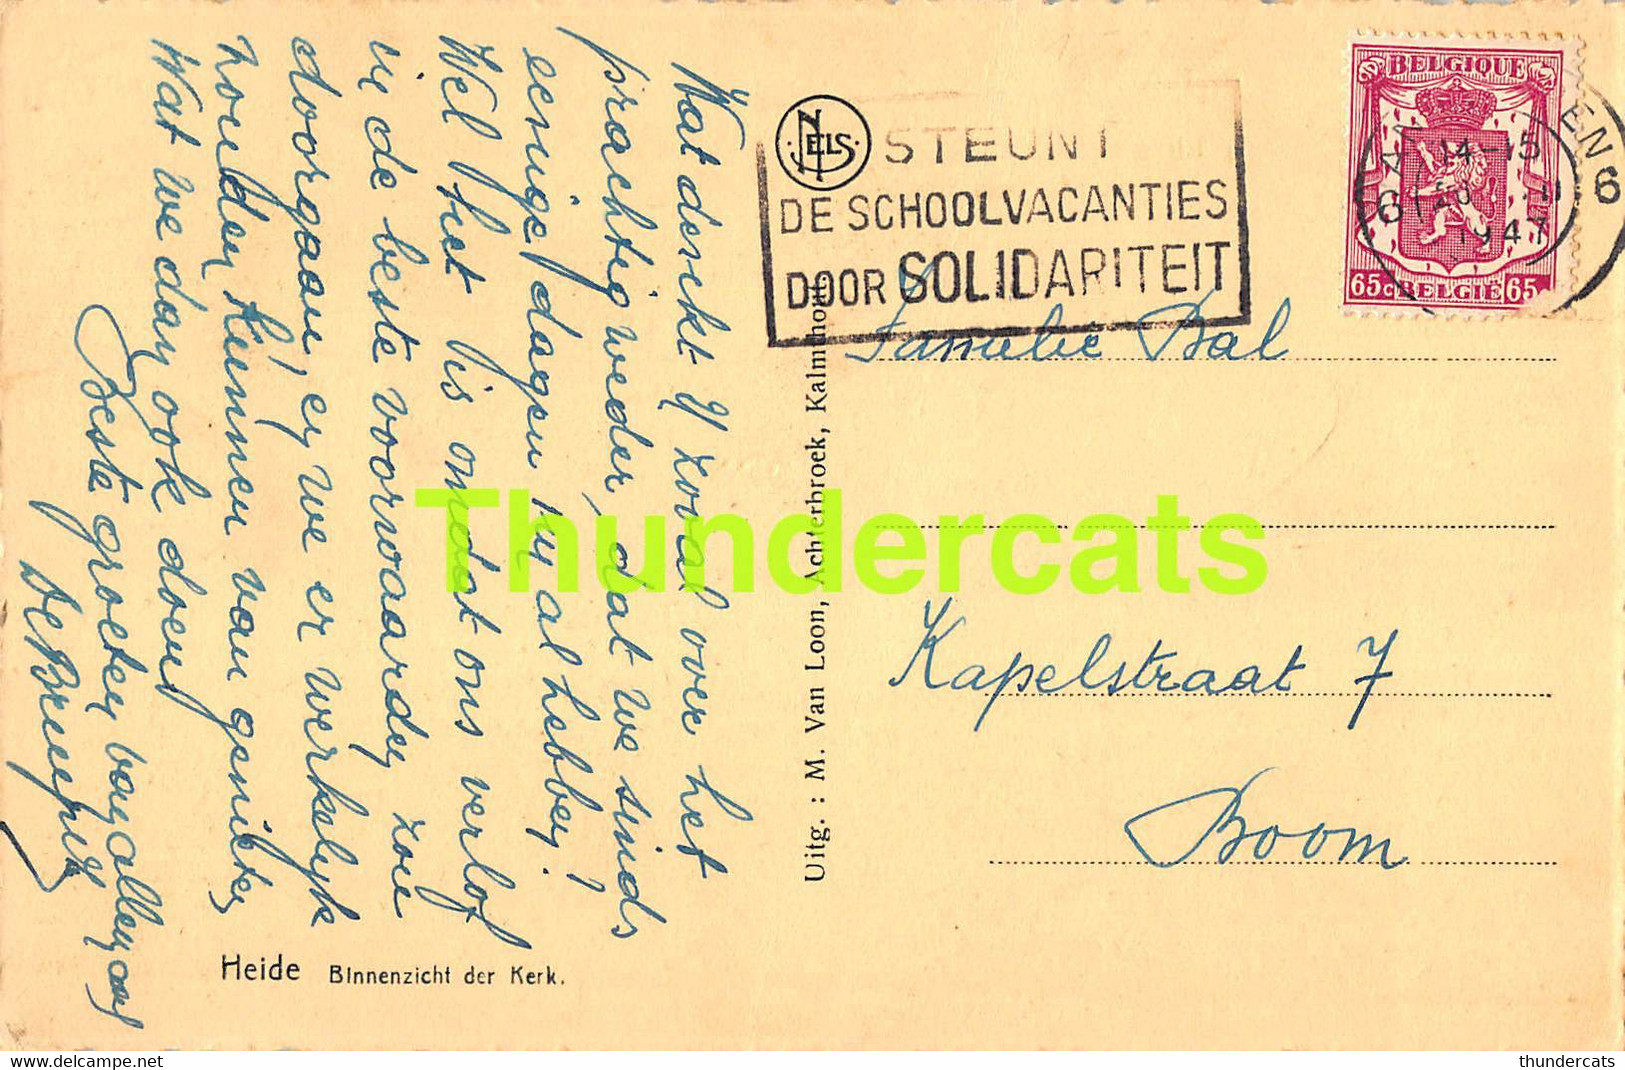 Wat denkt U zooal over het
prachtig weder, dat we sinds
eenige dagen nu al hebben?
Wel het is omdat ons verlof
in de beste voorwaarden zou
doorgaan, en we er werkelijk
zouden kunnen van genieten
Wat we dan ook doen!
Beste groeten van allen aan
Heide Binnenzicht der Kerk.
Uitg. : M. Van Loon, Achterbroek, Kalmthout.
NELS
STEUNT
DE SCHOOLVACANTIES
DOOR SOLIDARITEIT
BELGIQUE
65c BELGIE 65c
14-15
20
1947
6
6
Familie Bal
Kapelstraat 7
Boom
Thundercats
thundercats
delcampe.net